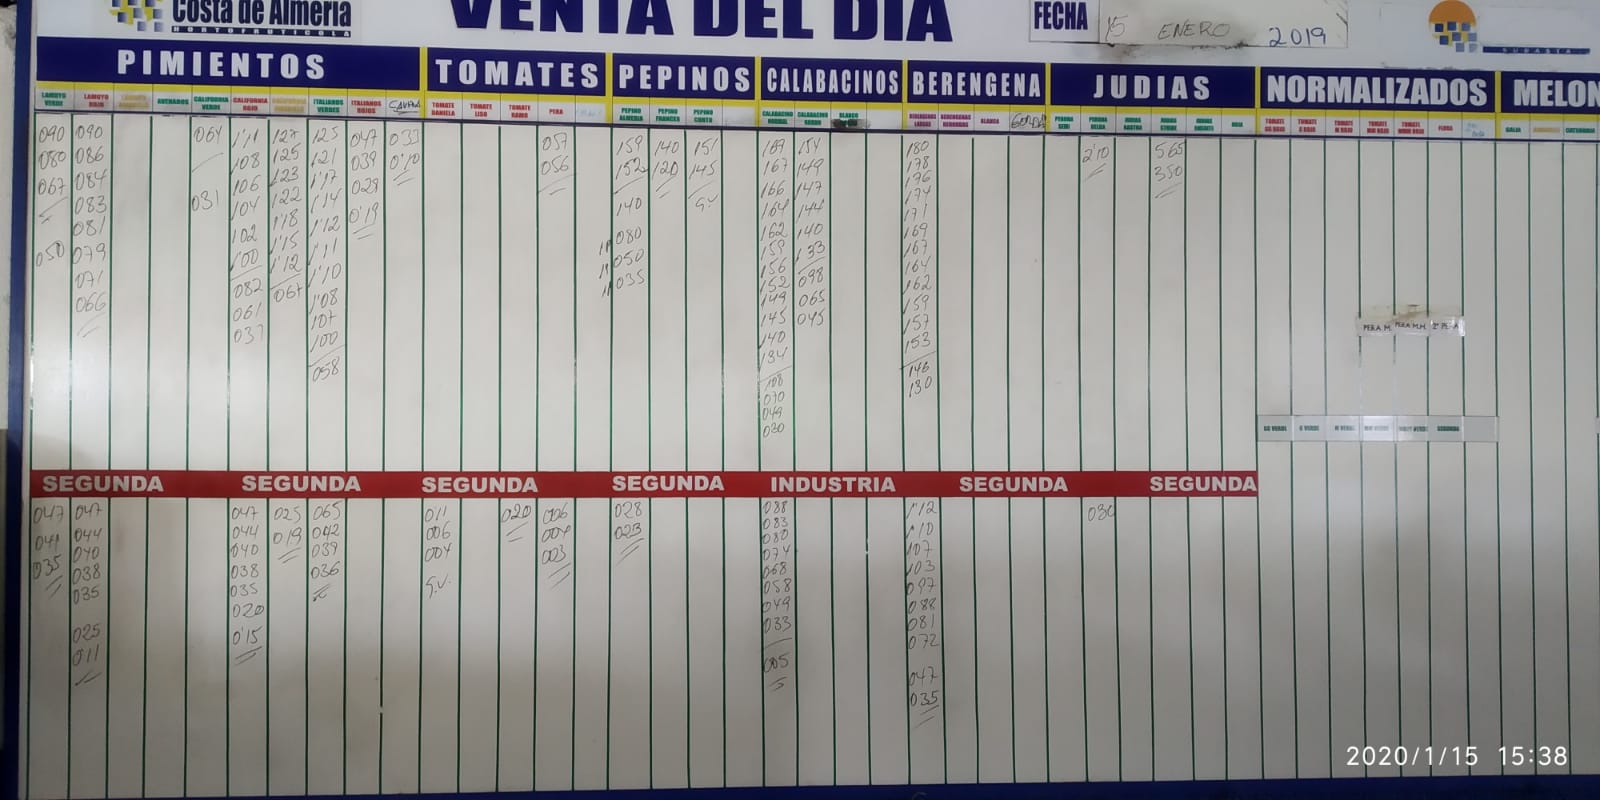 Costa de Almería
HORTOFRUTICOLA
VENTA DEL DIA
FECHA 15 ENERO 2019
SUBASTA
PIMIENTOS TOMATES PEPINOS CALABACINOS BERENGENA JUDIAS NORMALIZADOS MELON
LAMUYO VERDE
LAMUYO ROJO
CALIFORNIA VERDE
CALIFORNIA ROJO
ITALIANOS VERDES
ITALIANOS ROJOS
TOMATE DANIELA
TOMATE LISO
TOMATE RAMO
PERA
PEPINO ALMERIA
PEPINO FRANCES
PEPINO CORTO
CALABACINO NORMAL
CALABACINO GORDO
BLANCO
BLANCA
GORDA
GALIA
090
080
067
050
090
086
084
083
081
079
071
066
064
031
1'11
108
106
104
102
1'00
082
061
037
127
125
123
122
1'18
1'15
1'12
067
125
121
1'17
1'14
1'12
1'11
1'10
1'08
107
100
058
047
039
029
0'19
033
0'10
057
056
159
152
140
080
050
035
140
120
151
145
G.V.
169
167
166
164
162
159
156
152
149
145
140
134
108
070
049
030
154
149
147
144
140
133
098
065
045
180
178
176
174
171
169
167
164
162
159
157
153
146
130
2'10
565
350
PERA M. PERA M.M. 2ª PERA
GG VERDE G VERDE M VERDE MM VERDE MMM VERDE SEGUNDA
SEGUNDA SEGUNDA SEGUNDA SEGUNDA INDUSTRIA SEGUNDA SEGUNDA
047
041
035
047
044
040
038
035
025
011
047
044
040
038
035
020
0'15
025
019
065
042
039
036
011
006
004
G.V.
020
006
004
003
028
023
088
083
080
074
068
058
049
033
005
1'12
1'10
107
103
097
088
081
072
047
035
030
2020/1/15 15:38